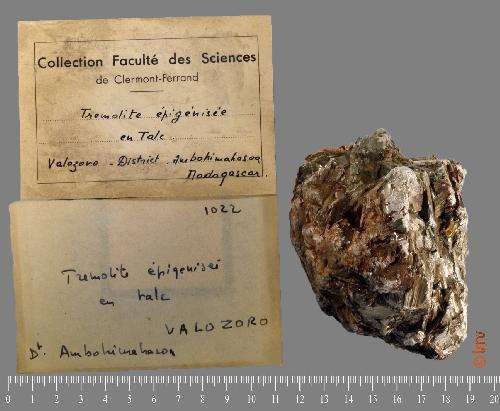 Collection Faculté des Sciences
de Clermont-Ferrand
Tremolite épigénisée
en Talc
Valozoro - District Ambohimahasoa
Madagascar.
1022
Tremolite épigenisée
en talc
VALOZORO
Dt. Ambohimahasoa
0 1 2 3 4 5 6 7 8 9 10 11 12 13 14 15 16 17 18 19 20